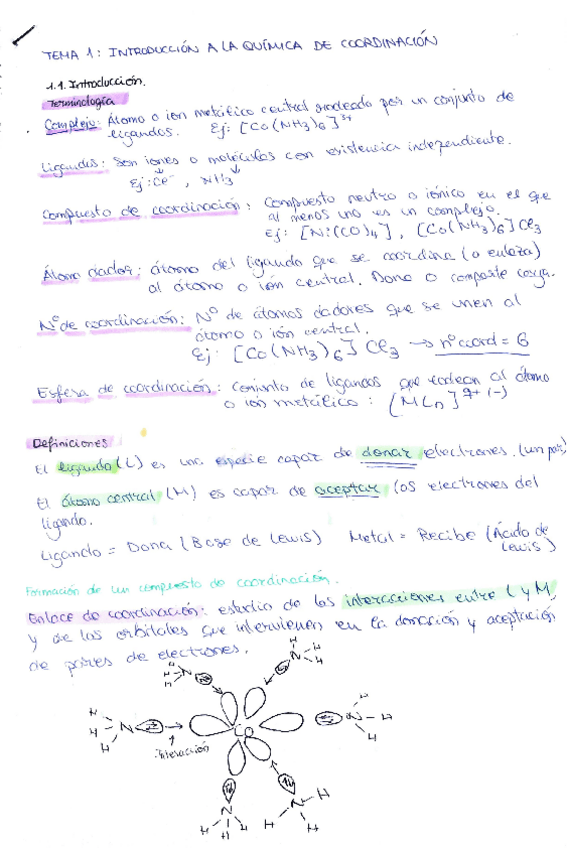 TEMA 1: INTRODUCCIÓN A LA QUÍMICA DE COORDINACIÓN
1.1. Introducción.
Terminología
Complejo: Átomo o ion metálico central rodeado por un conjunto de
ligandos. Ej: [Co(NH3)6]3+
Ligandos: Son iones o moléculas con existencia independiente.
Ej: Cl-, NH3
Compuesto de coordinación: Compuesto neutro o iónico en el que
al menos uno es un complejo.
Ej: [Ni(CO)4], [Co(NH3)6]Cl3
Átomo dador: átomo del ligando que se coordina (o enlaza)
al átomo o ión central. Dona o comparte carga.
Nº de coordinación: Nº de átomos dadores que se unen al
átomo o ión central.
Ej: [Co(NH3)6]Cl3 → nº coord = 6
Esfera de coordinación: conjunto de ligandos que rodean al átomo
o ion metálico: [MLn]q+(-)
Definiciones
El ligando (L) es una especie capaz de donar electrones. (un par)
El átomo central (M) es capaz de aceptar los electrones del
ligando.
Ligando = Dona (Base de Lewis) Metal = Recibe (Ácido de
Lewis)
Formación de un compuesto de coordinación.
Enlace de coordinación: estudio de las interacciones entre L y M,
y de los orbitales que intervienen en la donación y aceptación
de pares de electrones.
H N H H
N H H H
H H N H
Co
N H H H
interacción
N H H H
N H H H